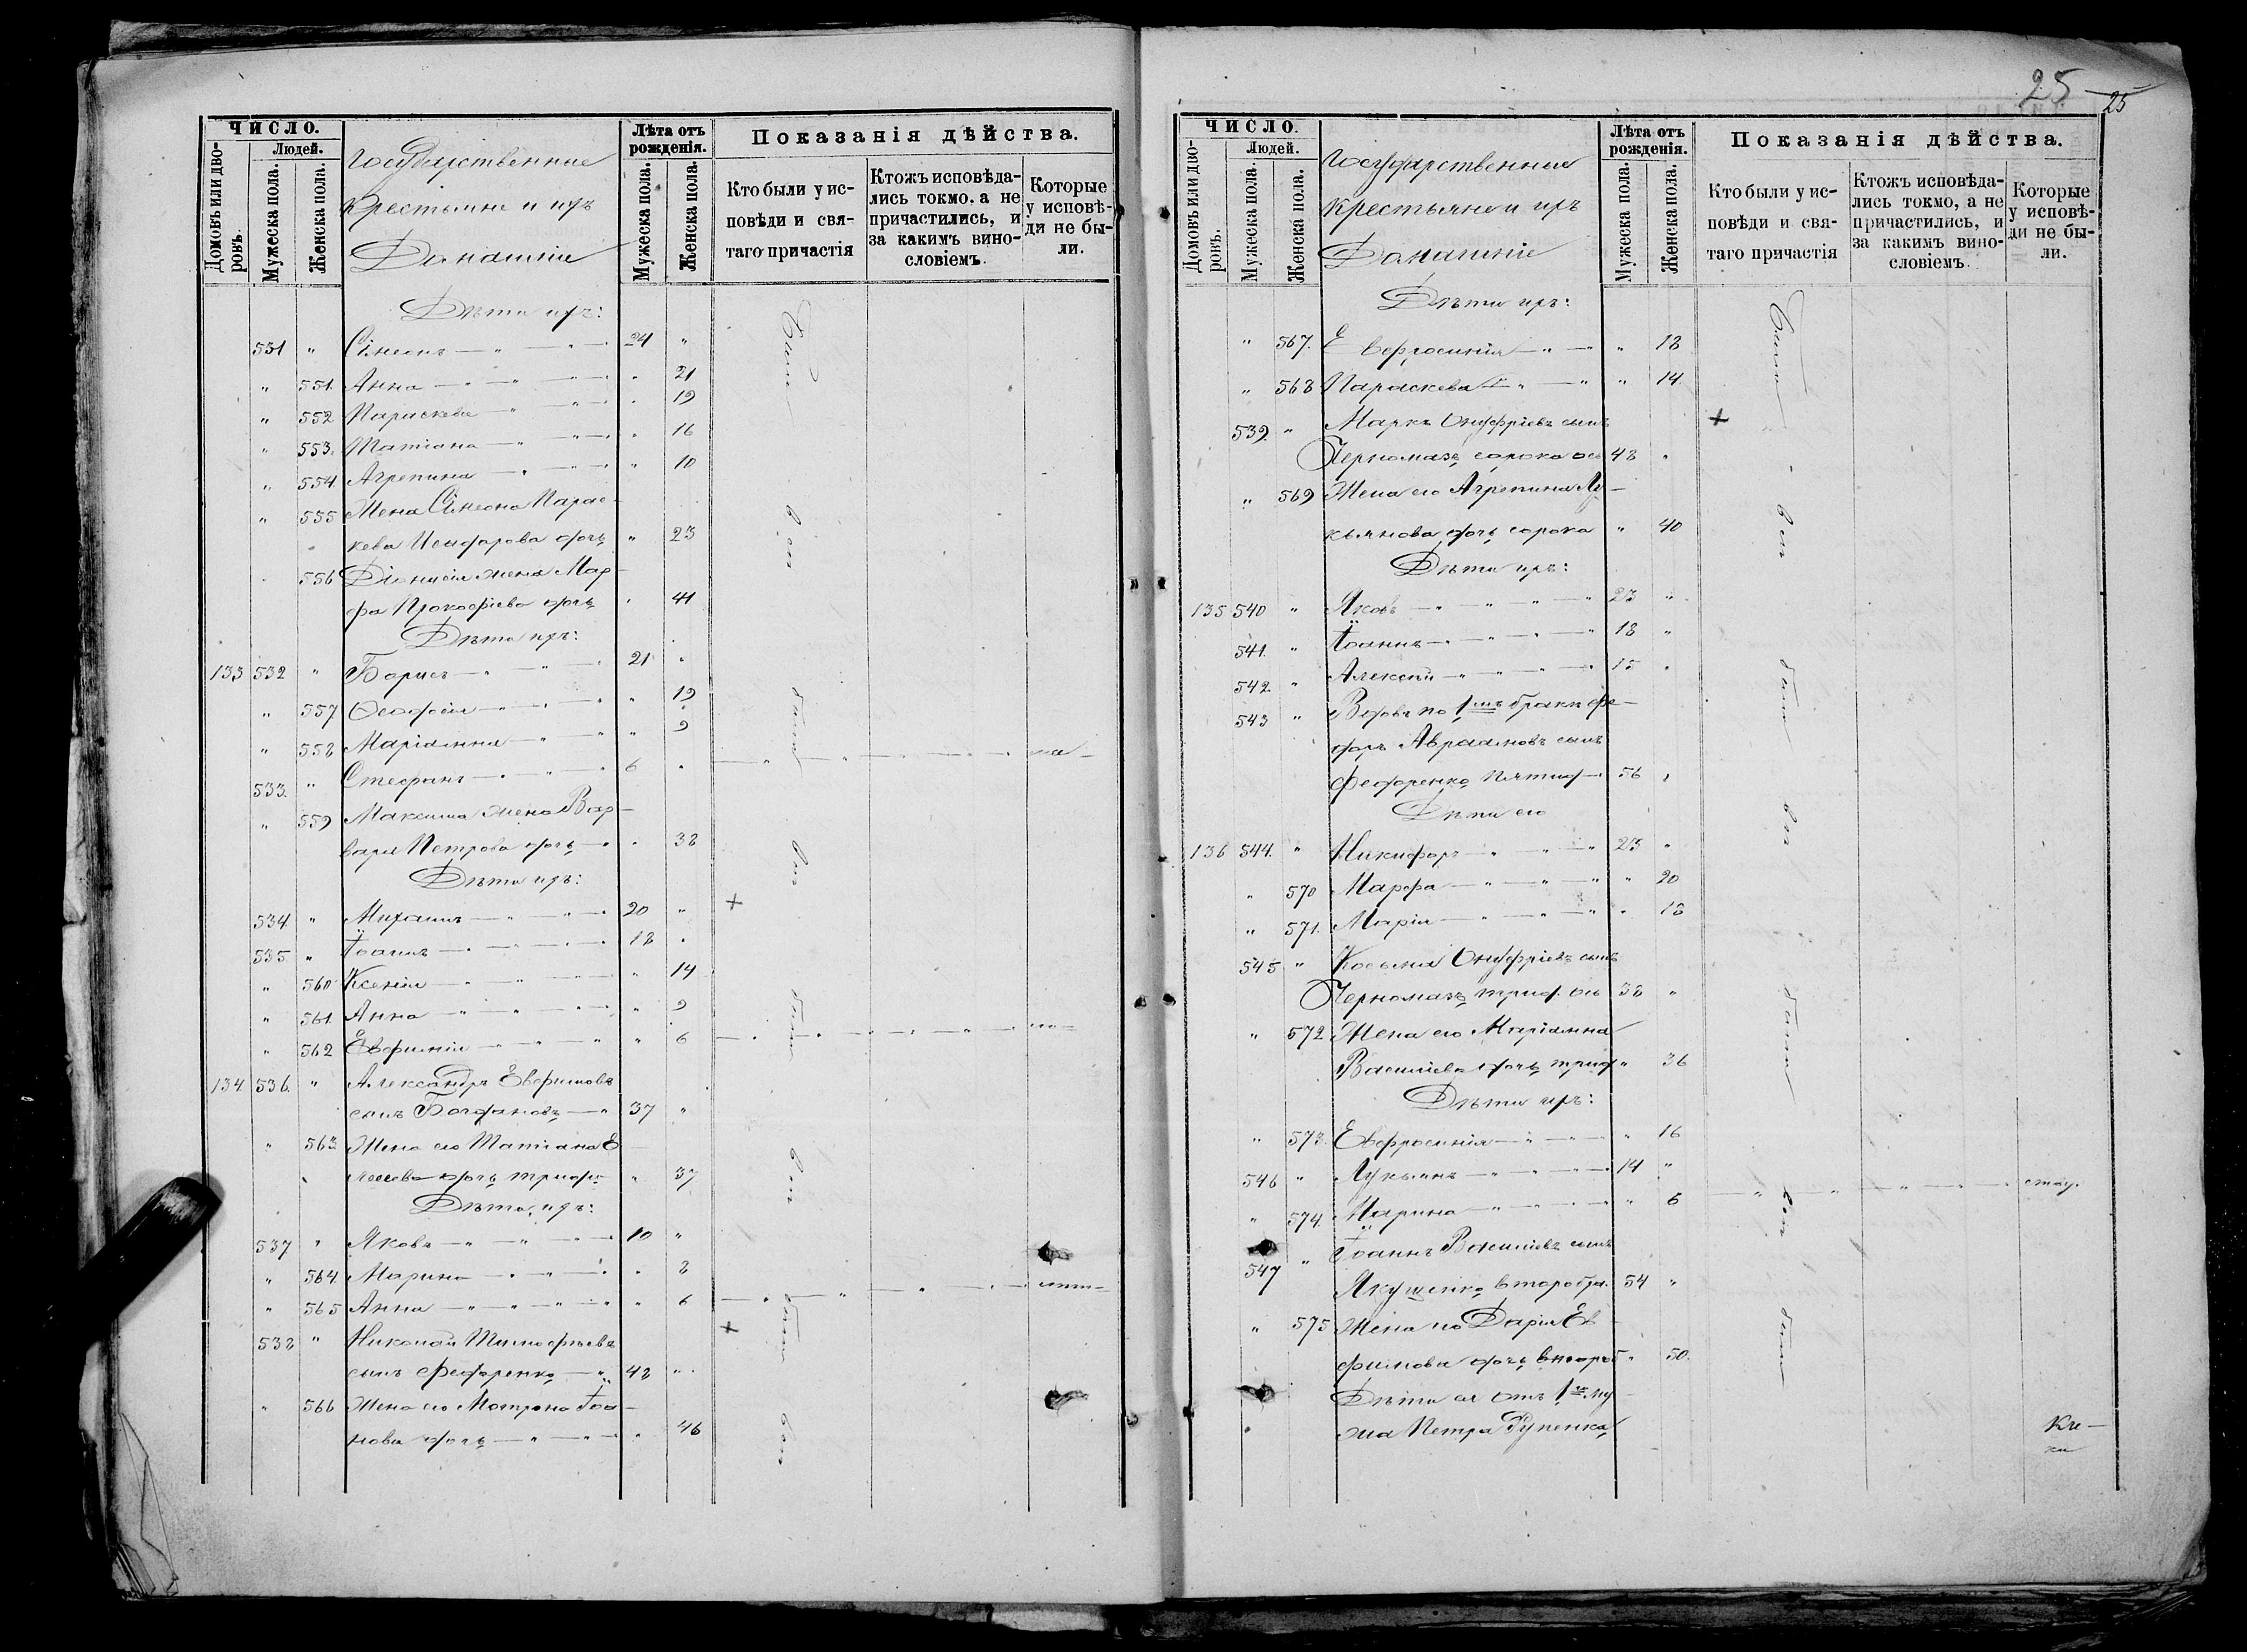 ЧИСЛО.
Домовъ или дворовъ.
Людей.
Мужеска пола.
Женска пола.
Государственные
Крестьяне и ихъ
Домашніе
Лѣта отъ рожденія.
Мужеска пола.
Женска пола.
Показанія дѣйства.
Кто были у исповѣди и святаго причастія
Ктожъ исповѣдались токмо. а не причастились, и за какимъ винословіемъ.
Которые у исповѣди не были.
Дѣти ихъ:
531 " Сѵмеонъ — " — " — 24 "
" 551. Анна — " — " — " 21
" 552 Параскева — " — " — " 19
" 553. Татіана — " — " — " 16
" 554. Агрепина — " — " — " 10
" 555 Жена Сѵмеона Парас-
кева дочь " 23
556 Діонисія жена Мар-
фа Прокофіева дочь " 41
Дѣти ихъ:
133 532 " Борисъ — " — " — 21 "
" 557 Ѳеодосія — " — " — " 19
" 558 Маріамна — " — " " 9
533. " Стефанъ — " — " — 6 "
" 559 Максима жена Вар-
вара Петрова дочь — " " 38
Дѣти ихъ:
534 " Михаилъ — " — " — 20 " +
535 " Іоаннъ — " — " — 18 "
" 560 Ксенія — " — " — " 14
" 561. Анна — " — " — " 9
" 562 Евфимія — " — " — " 6
134. 536. " Александръ Евфимовъ
сынъ Богдановъ — " 37 "
" 563 Жена его Татіана Е-
дочь " 37
Дѣти ихъ:
537 " Яковъ — " — " — 10 "
" 564. Марина — " — " — " 8
" 565 Анна — " — " — " 6
538 " Николай Тимофѣевъ +
сынъ Федоренко — " 48 "
" 566 Жена его Матрона Іоа-
нова дочь — " — " — " 46
Были вси были вси были вси были вси
25
25
ЧИСЛО.
Домовъ или дворовъ.
Людей.
Мужеска пола.
Женска пола.
Государственные
Крестьяне и ихъ
Домашніе
Лѣта отъ рожденія.
Мужеска пола.
Женска пола.
Показанія дѣйства.
Кто были у исповѣди и святаго причастія
Ктожъ исповѣдались токмо, а не причастились, и за какимъ винословіемъ.
Которые у исповѣди не были.
Дѣти ихъ:
" 567. Евфросинія — " — " 18
" 568 Параскева — " — " " 14.
539. " Маркъ Онуфріевъ сынъ +
Черномазъ сорока ос 48 "
" 569 Жена его Агрепина Лу-
кьянова дочь сорока " 40
Дѣти ихъ:
135 540 " Яковъ — " — " — " — " 23 "
541. " Іоаннъ — " — " — " — " 18 "
542. " Алексій — " — " — " 15 "
543 " Вдовъ по 1мъ бракѣ Фе-
доръ Авраамовъ сынъ
Федоренко пятид — 56 "
Дѣти его
136 544. " Никифоръ — " — " — " 23 "
" 570 Марфа — " — " — " " 20
" 571. Марія — " — " — " " 18
545 " Косьма Онуфріевъ сынъ
Черномазъ трид. ос 38 "
" 572 Жена его Маріамна
Василіева дочь трид " 36
Дѣти ихъ:
" 573. Евфросинія — " — " — " 16
546 " Лукьянъ — " — " — " 14 "
" 574. Марина — " — " — " " 6
547 " Іоаннъ Василіевъ сынъ
Якушенко второбр. 54 "
" 575 Жена его Дарія Ев-
фимова дочь второб " 50.
Дѣти ея отъ 1го му-
жа Петра Рупенка
Были вси были вси были вси были